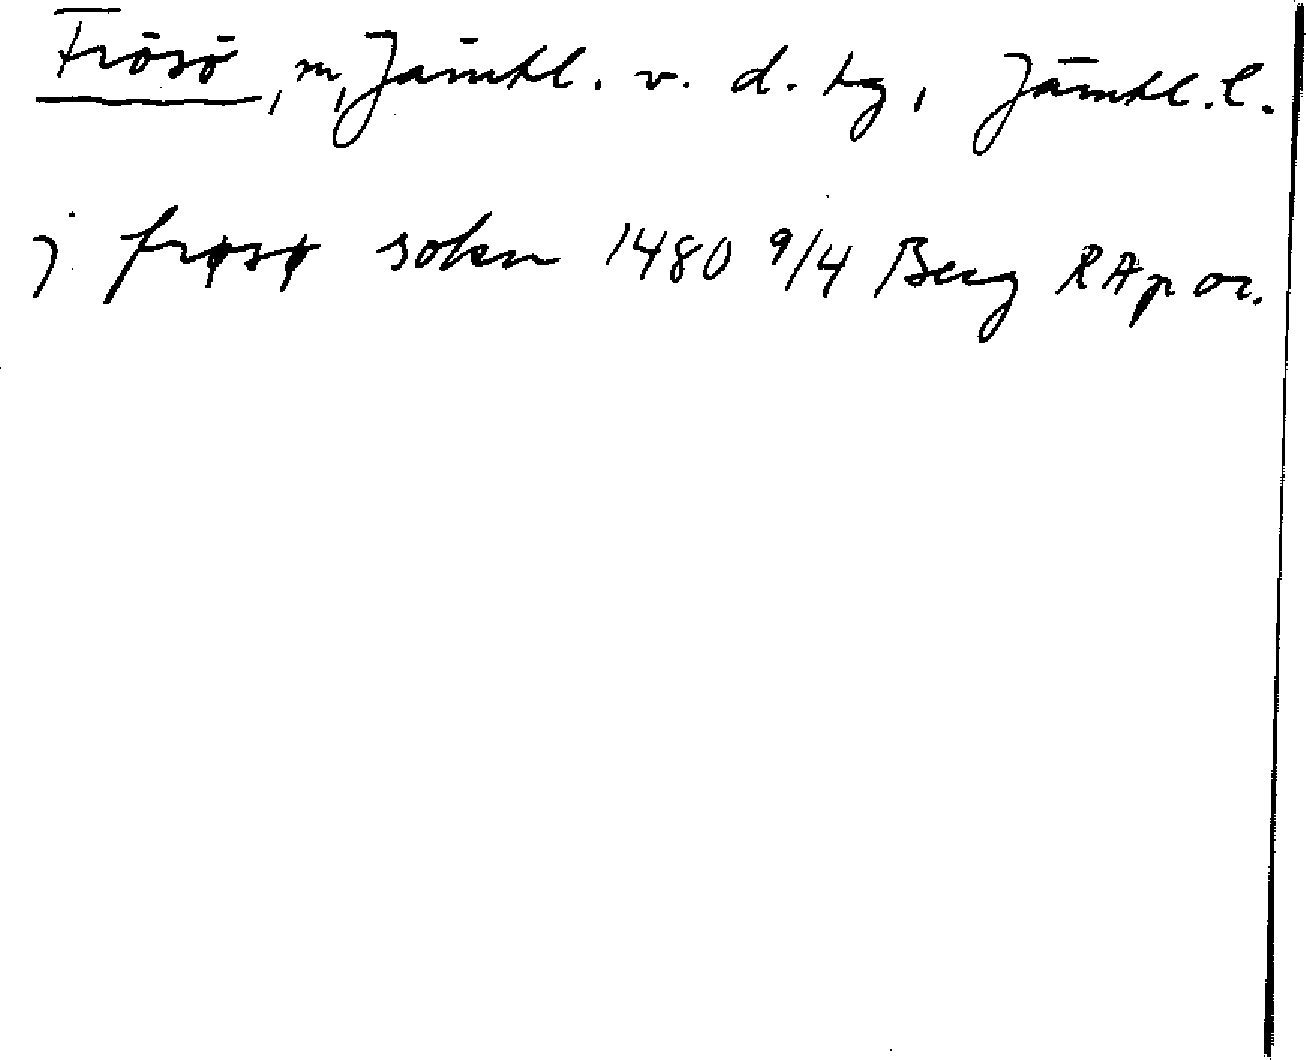 Frösö, n, Jämtl. v. d. tg, Jämtl. l.
j frøsø sokn 1480 9/4 Berg RAp or.